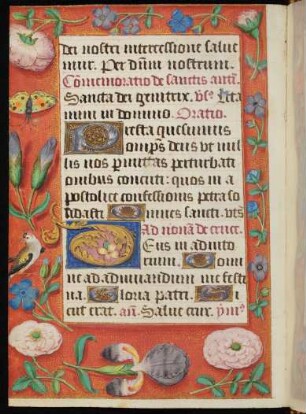 dei nostri intercessione salue
mur. Per dñm nostrum.
Cōmemoratio de sanctis añ.
Sancta dei genitrix. vs. Leta
mini in domino. Oratio.
Presta quesumus
omps deus ut nul
lis nos pmittas perturbati
onibus concuti: quos in a
postolice confessionis petra so
lidasti. Omnes sancti. vs.
Ad nonā de cruce.
Deus in adiuto
rium. Domi
ne ad adiuuandum me festi
na. Gloria patri. Si
cut erat. añ. Salue crux.